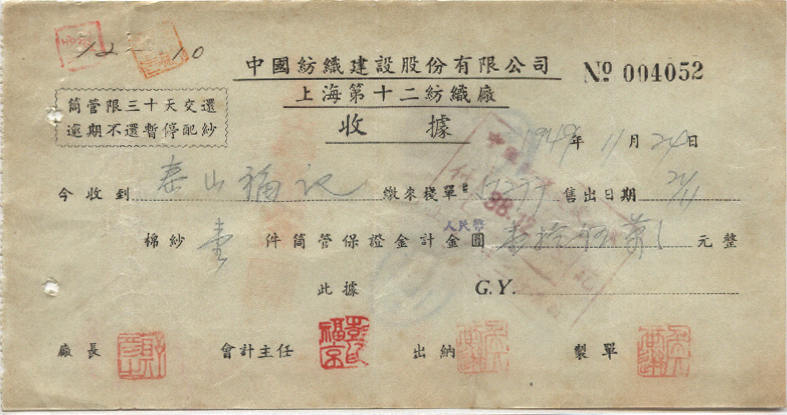 12 — 10
中國紡織建設股份有限公司
№ 004052
上海第十二紡織廠
筒管限三十天交還
逾期不還暫停配紗
收據
1949年11月24日
今收到 泰山福記 繳來棧單 售出日期
棉紗 壹 件筒管保證金計金圓 元整
人民幣
此據 G.Y.
廠長 會計主任 出納 製單